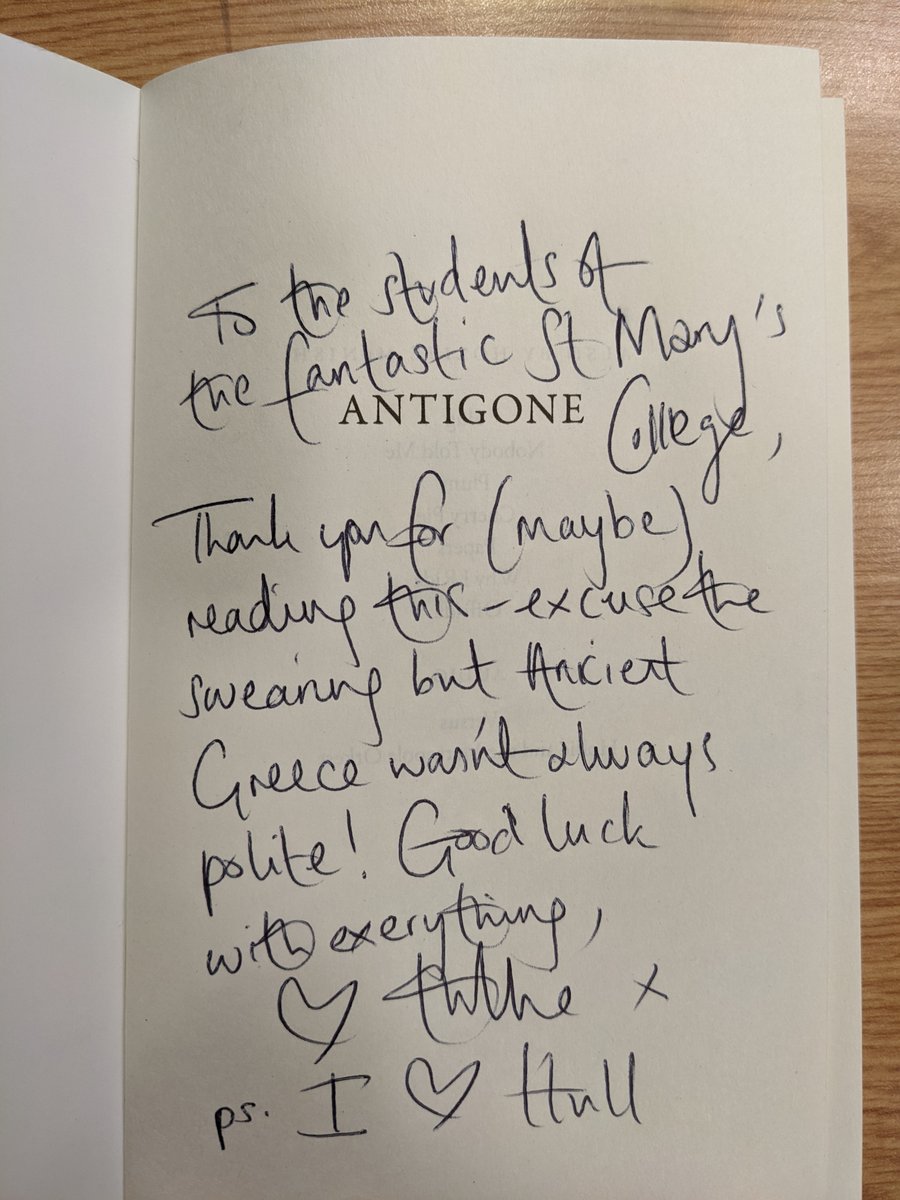 To the students of
the fantastic St Mary's
ANTIGONE
College,
Thank you for (maybe)
reading this - excuse the
swearing but Ancient
Greece wasn't always
polite! Good luck
with everything,
♡ Hollie x
ps. I ♡ Hull